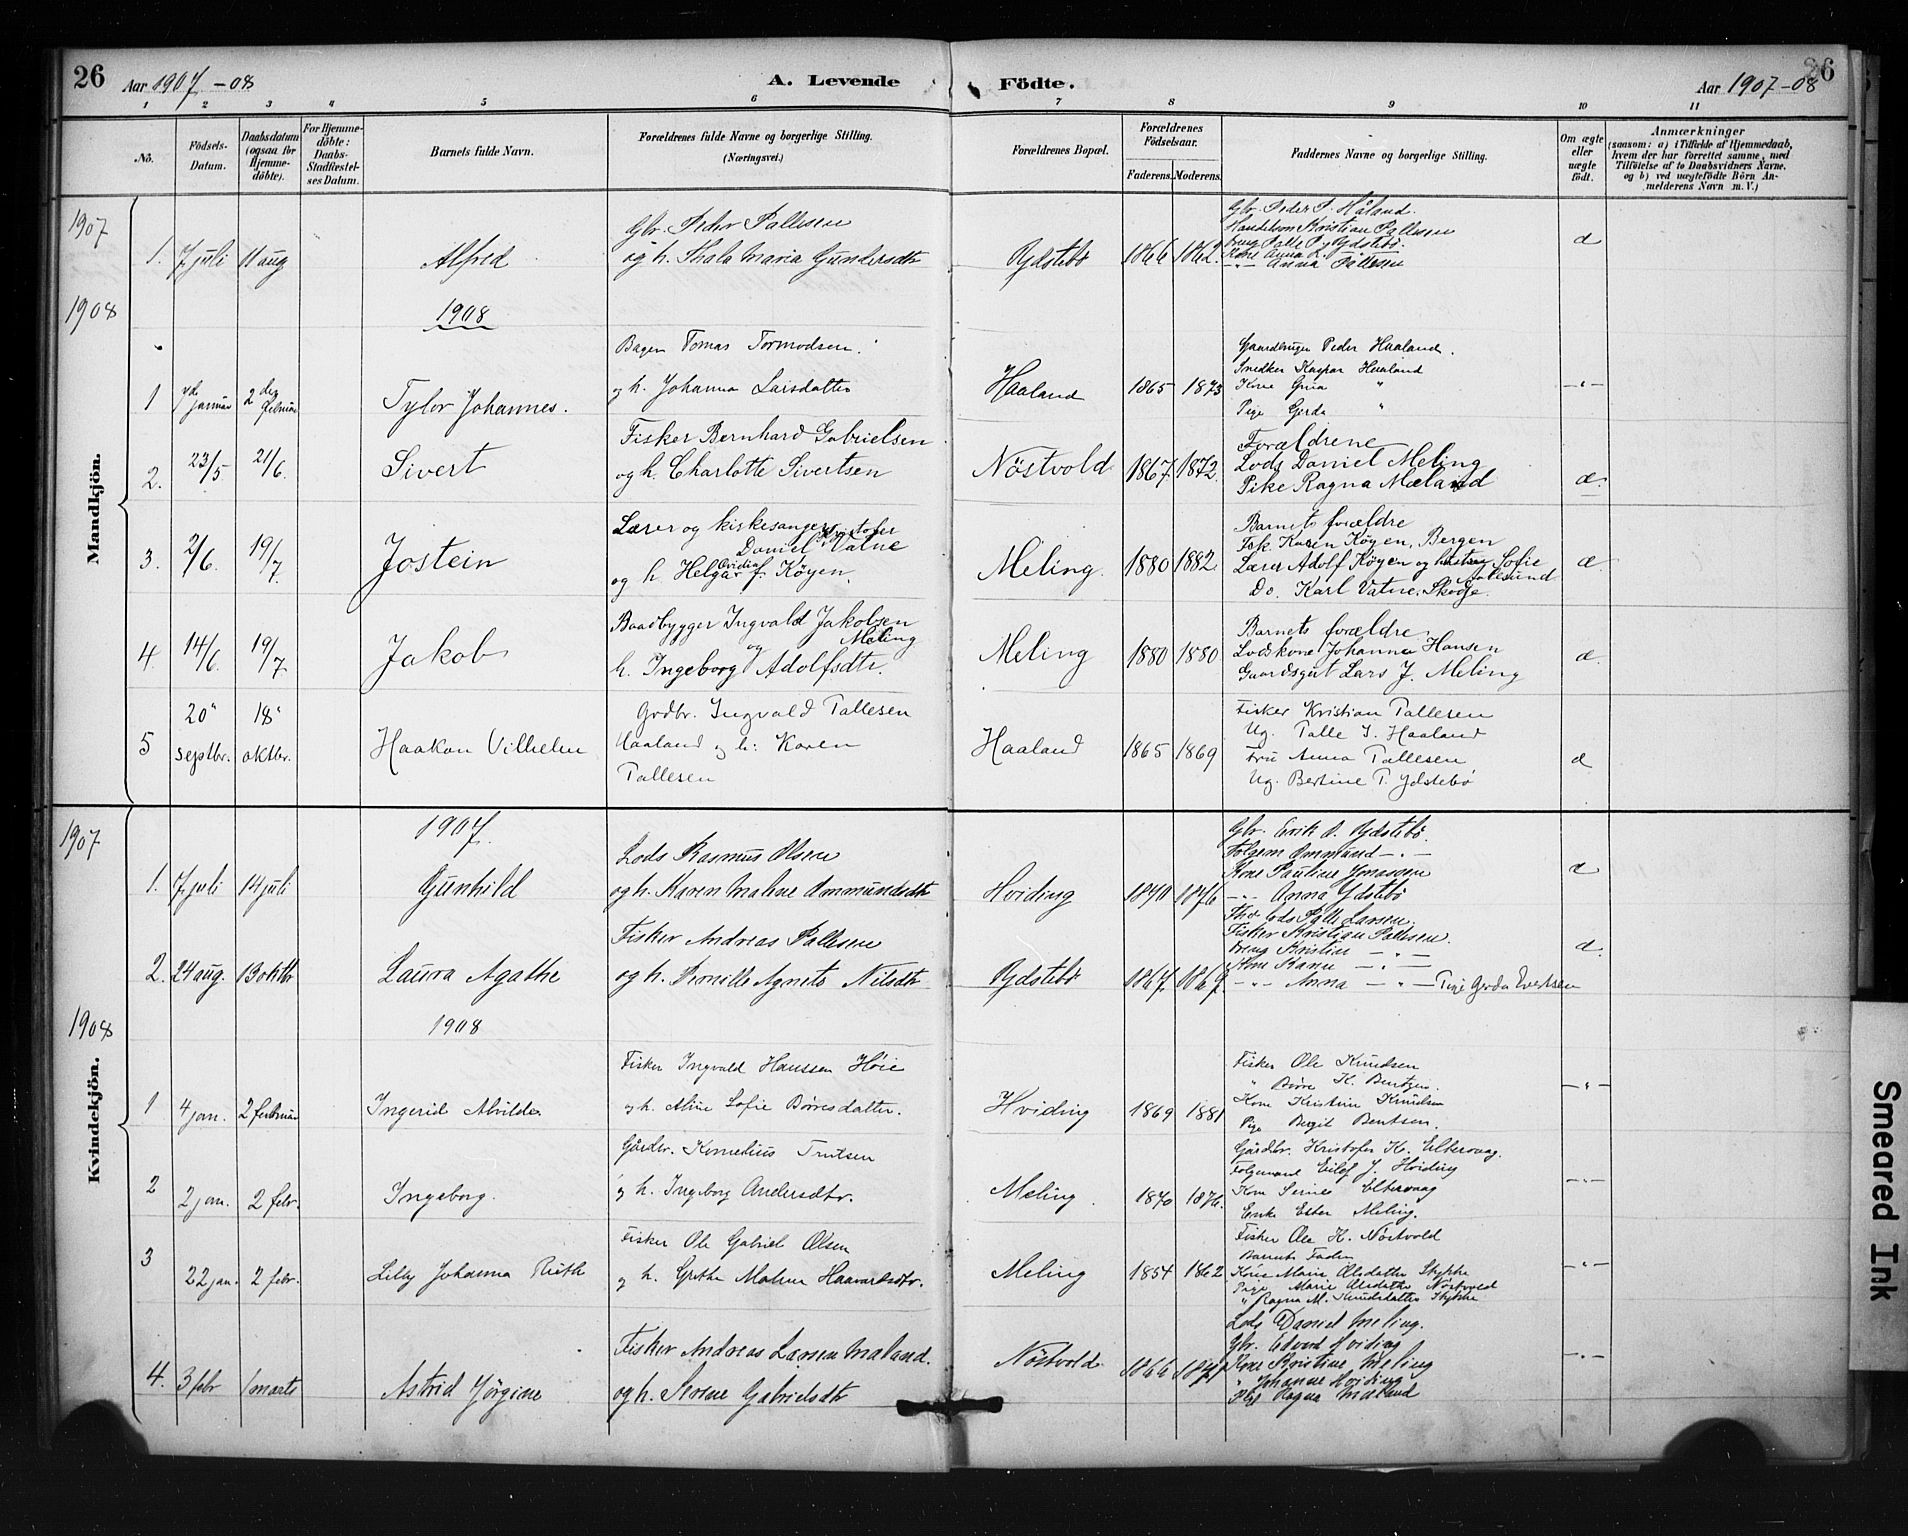 26 Aar 1907-08 A. Levende Födte. Aar 1907-08 26
1 2 3 4 5 6 7 8 9 10 11
No.
Födsels-Datum.
Daabsdatum (ogsaa for Hjemme-döbte).
For Hjemme-döbte: Daabs-Stadfæstel-ses Datum.
Barnets fulde Navn.
Forældrenes fulde Navne og borgerlige Stilling. (Næringsvei.)
Forældrenes Bopæl.
Forældrenes Födselsaar.
Faderens. Moderens.
Faddernes Navne og borgerlige Stilling.
Om ægte eller uægte födt.
Anmærkninger
(saasom: a) i Tilfælde af Hjemmedaab, hvem der har forrettet samme, med Tilföielse af to Daabsvidners Navne. og b) ved uægtefödte Börn An-melderens Navn m. V.)
Mandkjön.
1907
1. 7 juli 11 aug Alfred
Gbr. Peder Pallesen
og h. Thala Maria Gundersdtr
Ydstebö 1866 1862.
Gbr. Peder P. Håland.
Kristian Pallesen
Palle P. Ydstebö.
Kone Anna
-"- Anna Pallesen
æ
1908
1908
1 7de januar 2den februar Tylor Johannes.
Bager Tomas Tormodsen.
og h. Johanna Larsdatter
Haaland 1865 1873
Gaardbruger Peder Haaland.
Snedker Kaspar Haaland
Kone Grua "
Pige Gerda "
-"-
2. 23/5 21/6. Sivert
Fisker Bernhard Gabrielsen
og h. Charlotte Sivertsen
Nöstvold 1867. 1872.
Forældrene
Lods Daniel Meling
Pike Ragna Mæland
æ.
3. 2/6. 19/7 Jostein
Lærer og kirkesanger Kristofer
Daniel Vatne
og h. Helga Ovidia f. Köyen.
Meling. 1880 1882.
Barnets forældre
Frk. Karen Köyen, Bergen
Lærer Adolf Köyen og hustru Sofie
Aalesund
Do. Karl Vatne, Skodje.
æ.
4 14/6. 19/7 Jakob
Baadbygger Ingvald Jakobsen
Meling
og
h. Ingeborg Adolfsdtr.
Meling 1880 1880
Barnets forældre
Lodskone Johanna Hansen
Gaardsgut Lars J. Meling
æ.
5 20" septbr. 18" oktbr. Haakon Vilhelm
Grdbr. Ingvald Tallesen
Haaland og h: Karen
Tallesen
Haaland 1865 1869
Fisker Kristian Tallesen
Ug. Talle I. Haaland
Fru Anna Tallesen
Ug. Bertine T. Ydstebö
æ
Kvindekjön.
1907
1907.
1. 7 juli 14 juli Gunhild
Lods Rasmus Olsen
og h. Karen Malene Ommundsdtr
Hviding 1870 1876
Gbr. Erik O. Ydstebö.
Ommund -"-
Kone Pauline Jonassen
-"- Anna Ydstebö
æ
2. 24 aug. 13 oktbr Laura Agathe
Fisker Andreas Pallesen
og h. Pernille Agnete Nilsdtr
Ydstebö 1867. 1867.
Lods Palle Larsen.
Fisker Kristian Pallesen.
Kristian -"-
Kone Karen -"-
-"- Anna -"- Pige Gerda Evertsen
æ.
1908
1908
1 4 jan. 2 februar Ingerid Alvilde
Fisker Ingvald Hanssen Höie
og h. Aline Sofie Börresdatter.
Hviding 1869 1881
Fisker Ole Knudsen
" Börre K. Bentzen.
Kone Kristine Knudsen
Pige Bergit Bentsen.
-"-
2 2 jan. 2 febr. Ingeborg.
Gårdbr. Kornelius Knutsen
og h. Ingeborg Andersdtr.
Meling. 1870 1876.
Gårdbr. Kristofer K. Eltervaag.
Folgemand Eilef J. Hviding
Kone Serine Eltervaag
Enke Ester Meling.
-"-
3 22 jan. 2 febr. Lilly Johanna Ruth
Fisker Ole Gabriel Olsen
og h. Grethe Malene Haavardsdtr.
Meling 1854 1862
Fisker Ole K. Nöstvold
Barnets Fader
Kone Marie Olsdatter
Pige Marie Olsdatter Nöstvold
" Ragna M. Knudsdatter
-"-
4. 3 febr 1 marts Astrid Jörgine
Fisker Andreas Larsen Mæland.
og h. Serine Gabrielsdtr
Nöstvold 1866 1871
Lods Daniel Meling.
Gbr. Edvard Hviding
Kone Kristine Meling
" Johanne Hviding
Pige Ragna Mæland
-"-
Smeared Ink